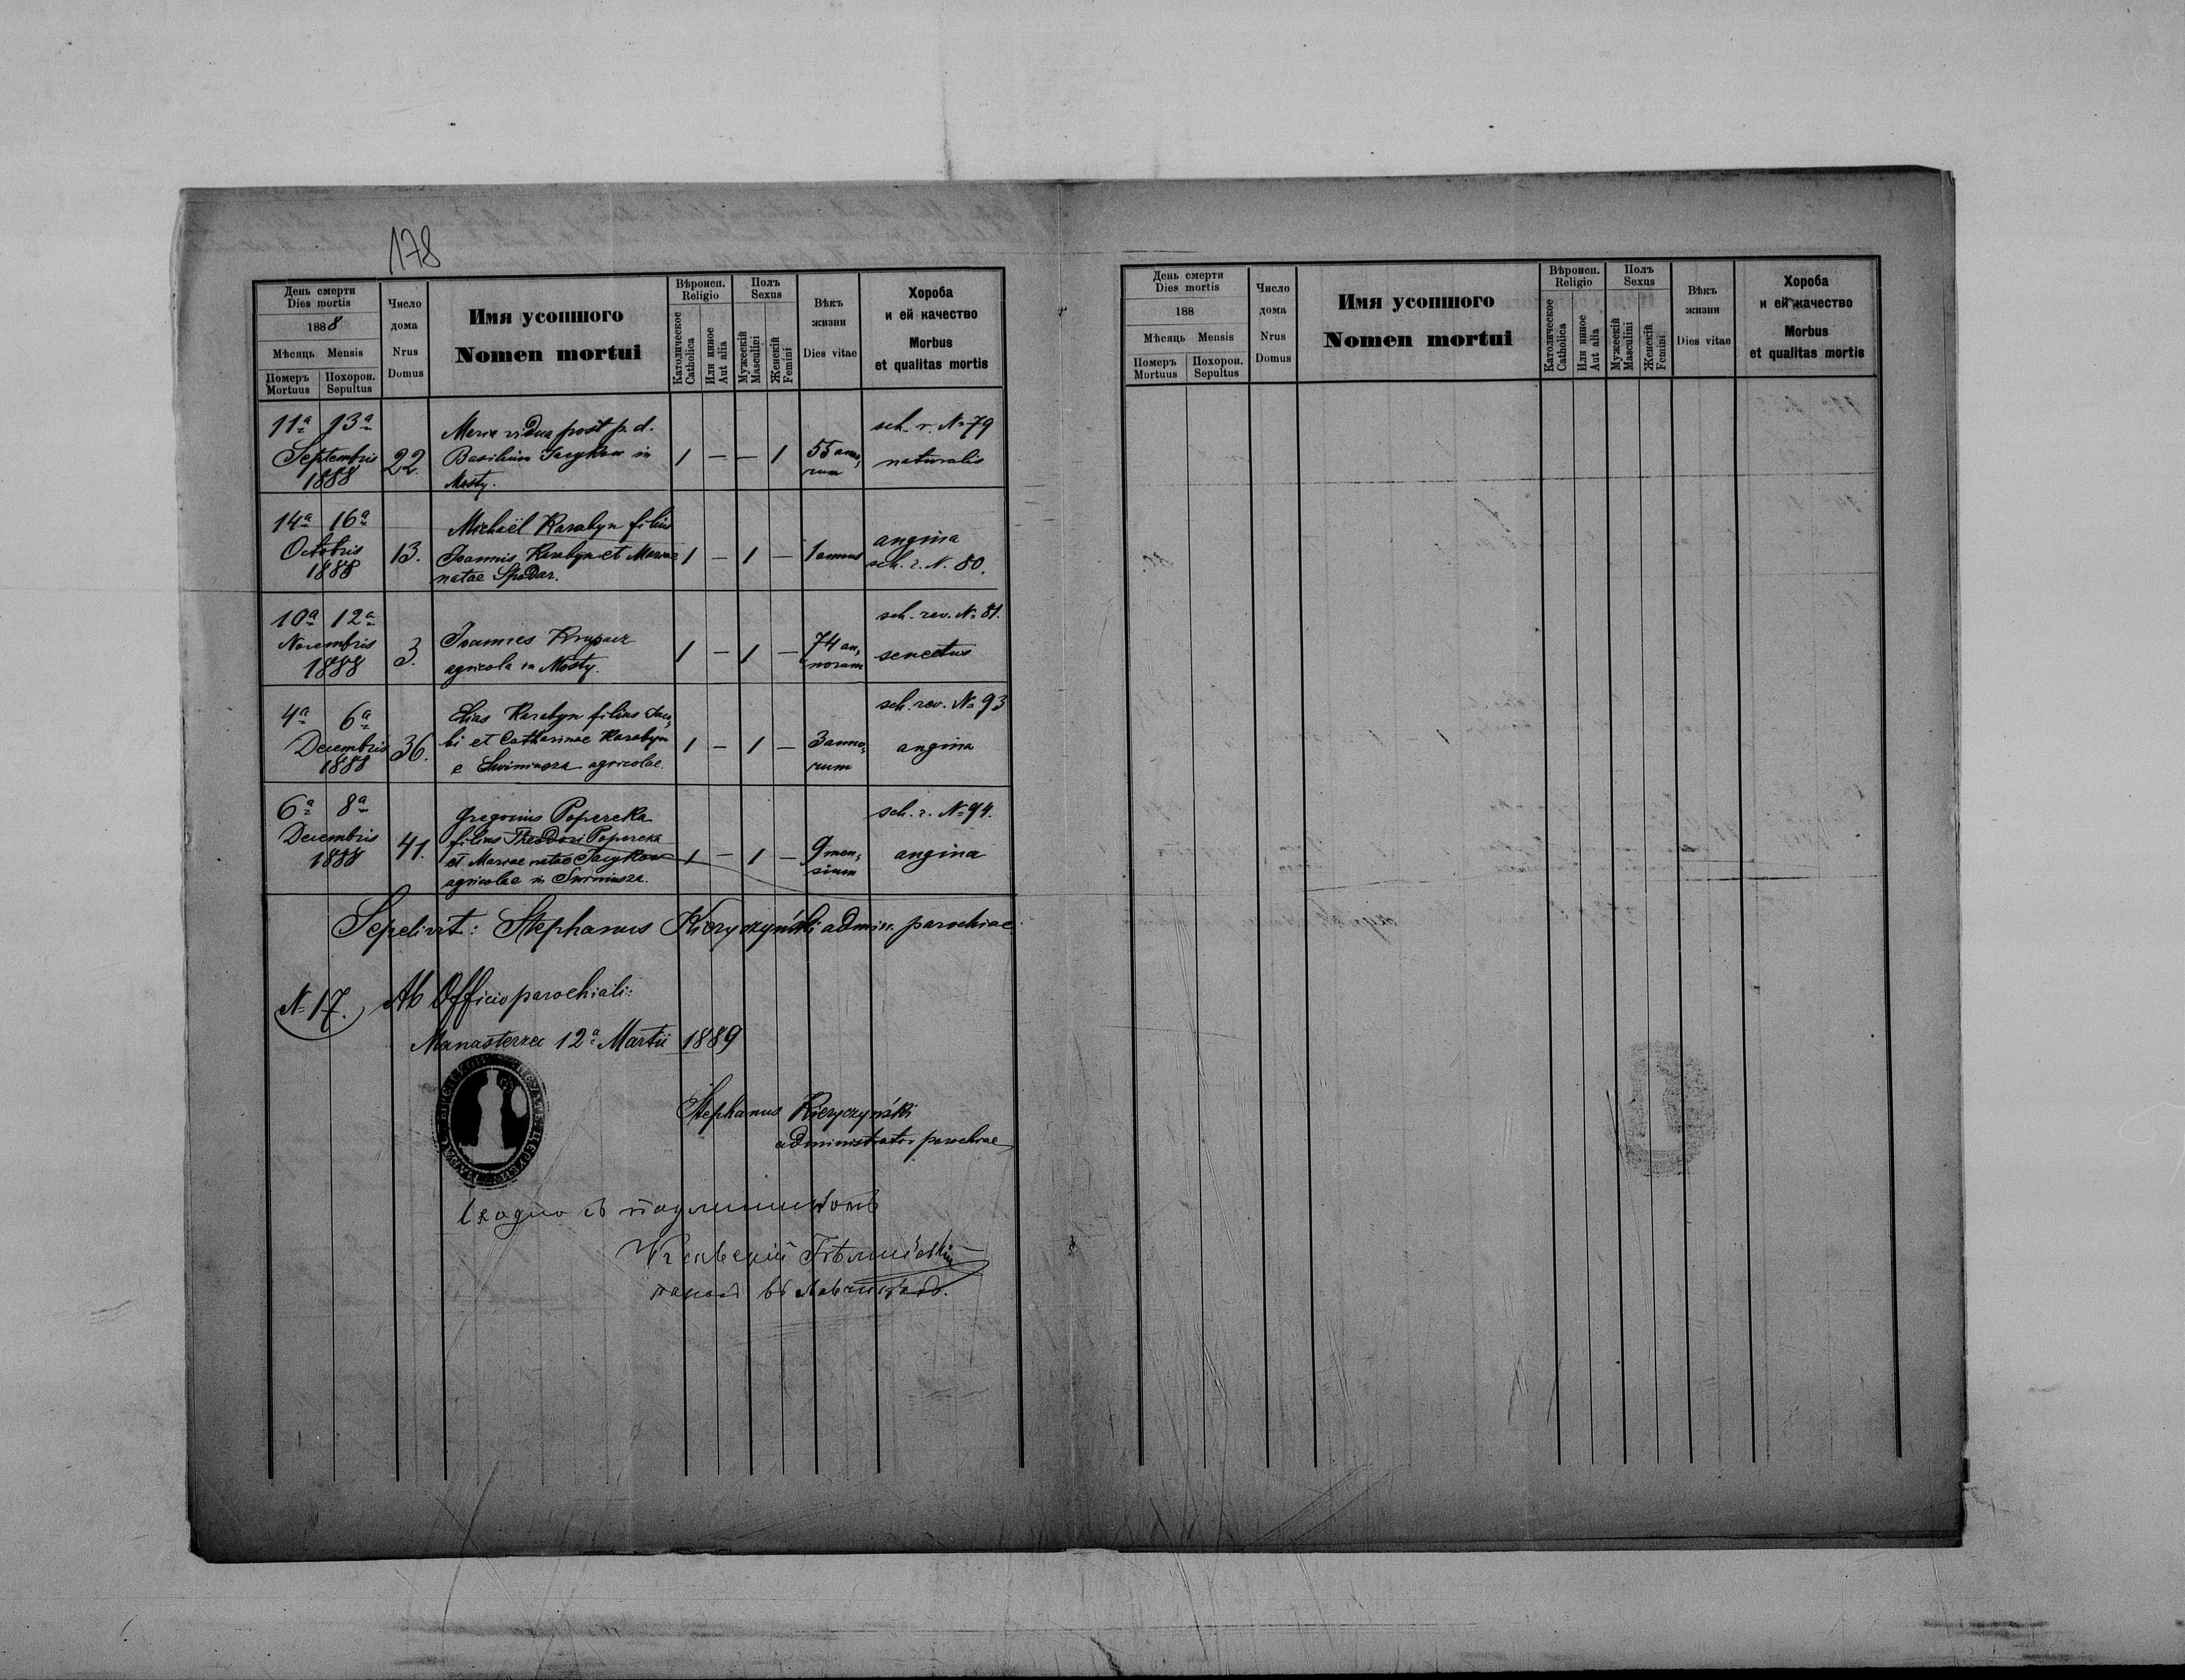 178
День смерти
Dies mortis
1888
Мѣсяць Mensis
Померъ Похорон.
Mortuus Sepultus
Число
дома
Nrus
Domus
Имя усопшого
Nomen mortui
Вѣроисп.
Religio
Католическое
Catholica
Или инное
Aut alia
Полъ
Sexus
Мужескій
Masculini
Женскій
Femini
Вѣкъ
жизни
Dies vitae
Хороба
и ей качество
Morbus
et qualitas mortis
11ª 13ª
Septembris
1888
22.
Maria vidua post p. d.
Basilium Jacykow in
Mosty.
1 — — 1
55 anno,
rum
sch. r. № 79
naturalis
14ª 16ª
Octobris
1888
13.
Michaël Karabyn filius
Joannis Karabyn et Mariae
natae Spodar.
1 — 1 —
1 annus
angina
sch. r. N. 80.
10ª 12ª
Novembris
1888
3.
Joannes Krupacz
agricola in Mosty.
1 — 1 —
74 an,
norum
sch. rev. № 81.
senectus
4ª 6ª
Decembris
1888
36.
Elias Karabyn filius Jaco,
bi et Catharinae Karabyn
e agricolae.
1 — 1 —
3 anno,
rum
sch. rev. № 93
angina
6ª 8ª
Decembris
1888
41.
Gregorius Popereka
filius Theodori Popereka
et Mariae natae Jacykow
agricolae in
1 — 1 —
9 men,
sium
sch. r. № 94.
angina
Sepelivit: Stephanus Kieryczyński admin. parochiae
№ 17. Ab Officio parochiali:
Manasterzec 12ª Martii 1889
Stephanus Kieryczyński
administrator parochiae
Сходно съ подлинникомъ
День смерти
Dies mortis
188
Мѣсяць Mensis
Померъ Похорон.
Mortuus Sepultus
Число
дома
Nrus
Domus
Имя усопшого
Nomen mortui
Вѣроисп.
Religio
Католическое
Catholica
Или инное
Aut alia
Полъ
Sexus
Мужескій
Masculini
Женскій
Femini
Вѣкъ
жизни
Dies vitae
Хороба
и ей качество
Morbus
et qualitas mortis